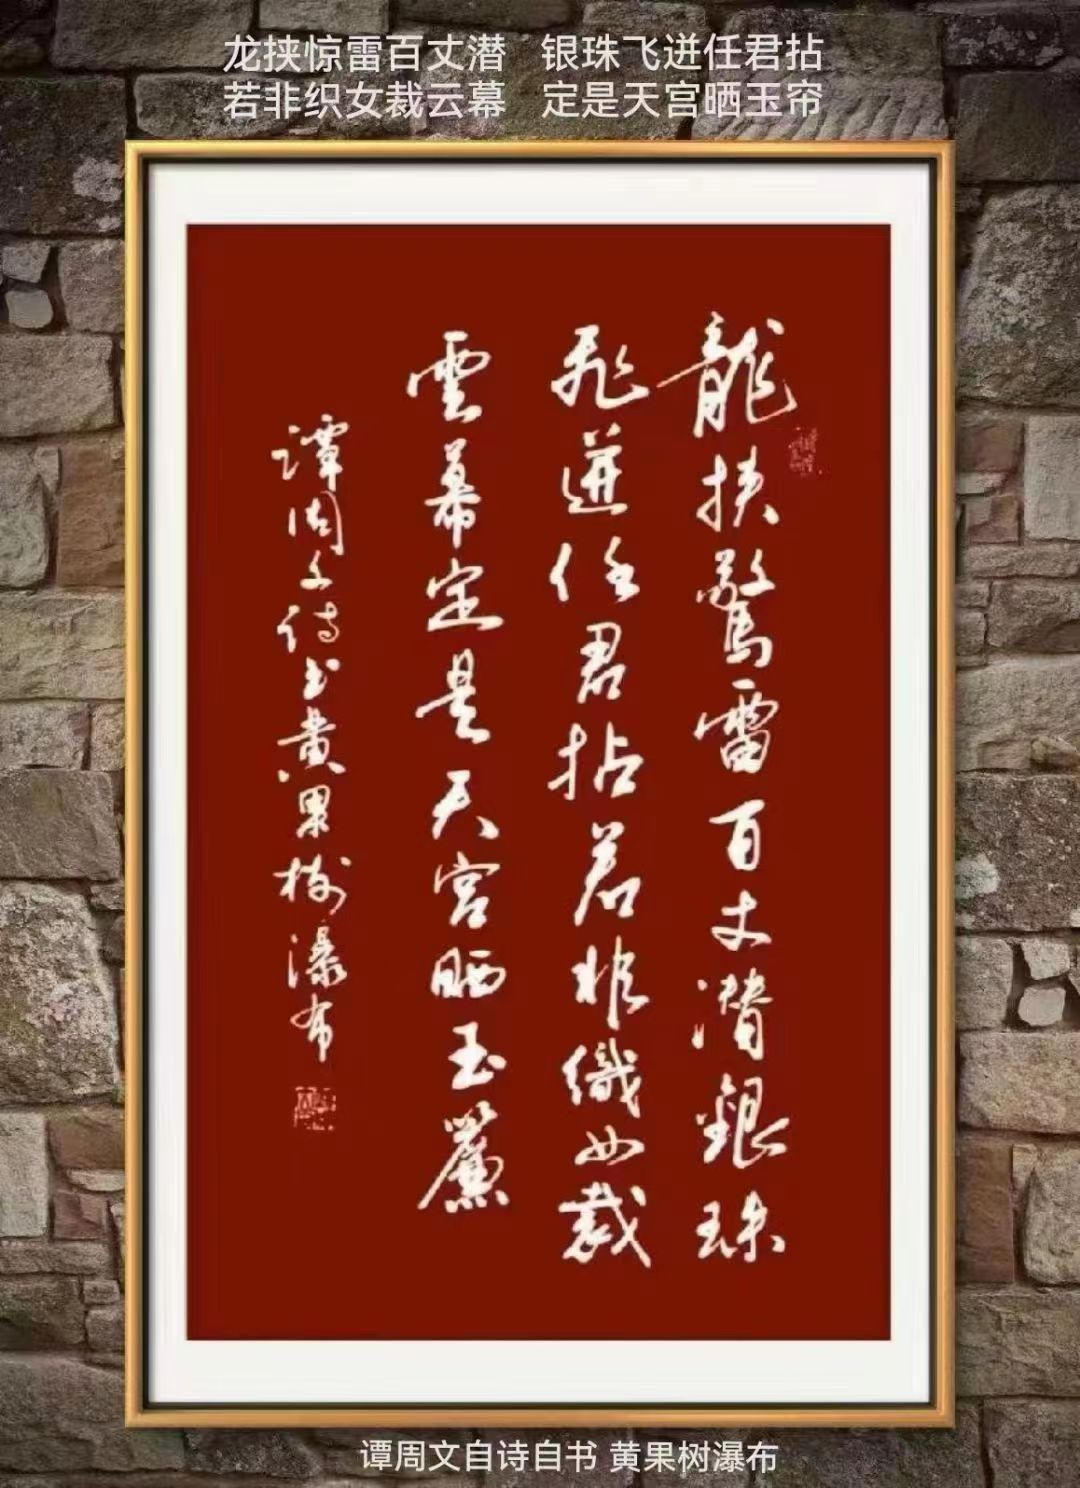 龙挟惊雷百丈潜 银珠飞迸任君拈
若非织女裁云幕 定是天宫晒玉帘
龍挟驚雷百丈潜銀珠
飛迸任君拈若非織女裁
雲幕定是天宫晒玉簾
譚周文诗书黄果樹瀑布
谭周文自诗自书 黄果树瀑布